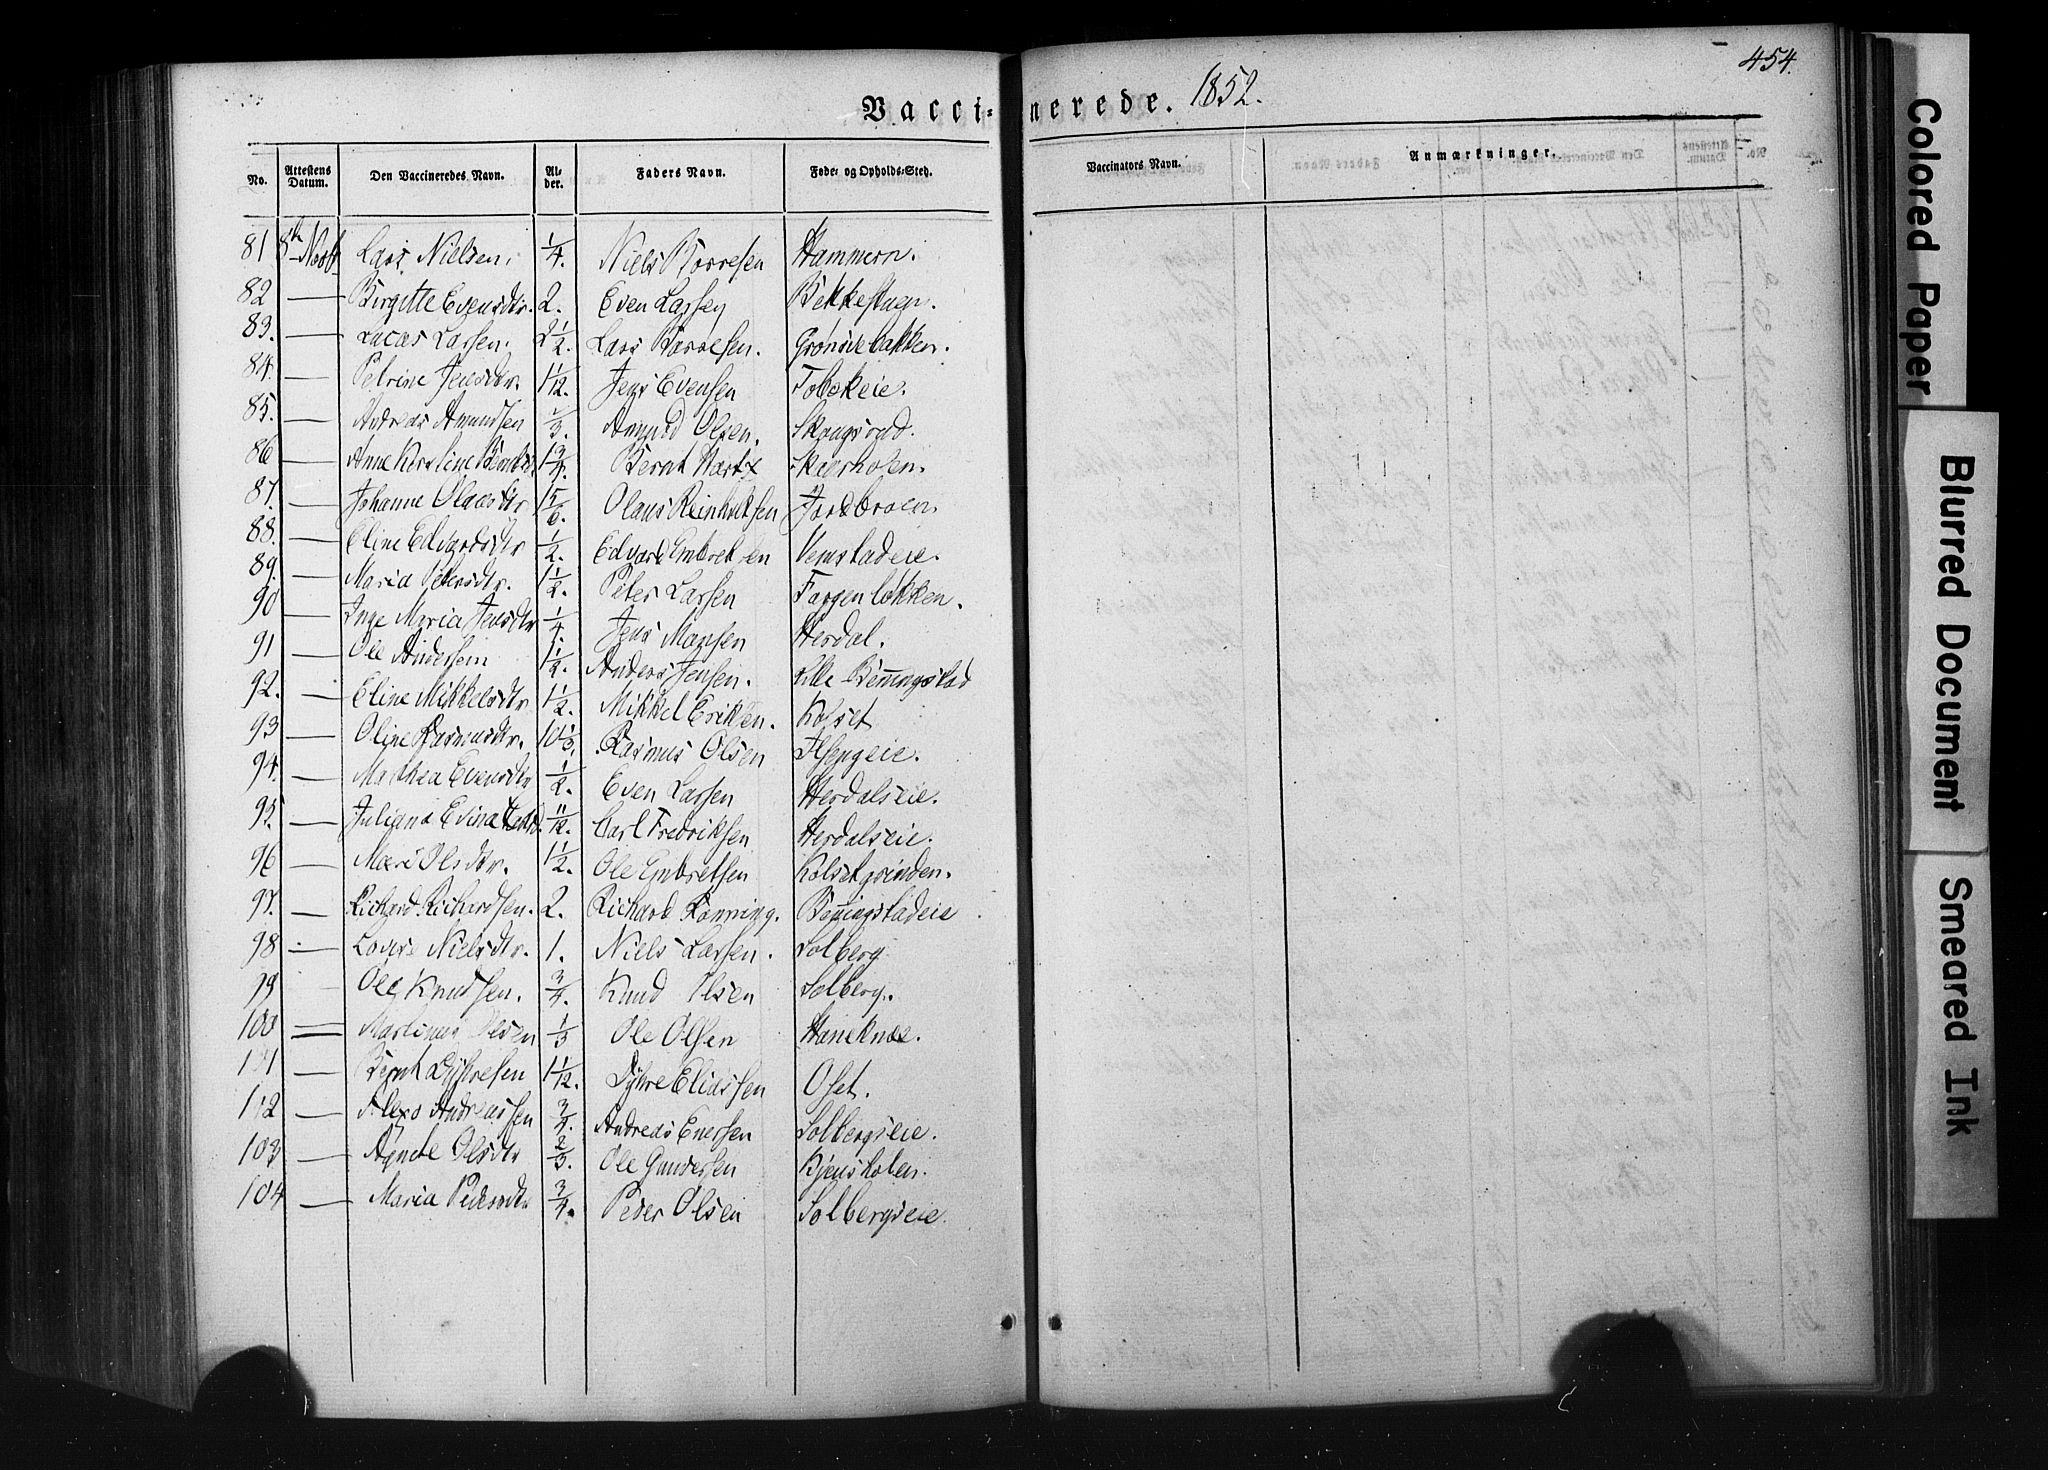 454.
Vaccinerede. 1852.
No. Attestens Datum. Den Vaccineredes Navn. Alder. Faders Navn. Føde- og Opholds-Sted. Vaccinators Navn. Anmærkninger.
81 8de Novb Lars Nielsen. 1/4. Niels Børresen Hammern.
82 — Birgitte Evensdtr. 2. Even Larsen Bekkestuen.
83. — Lucas Larsen. 2 1/2. Lars Børresen. Grønsletbakken.
84. — Petrine Jensdtr. 1 1/12. Jens Evensen
85. — Andreas Amundsen Amund Olsen. Skougsrud.
86 — Anne Karoline 1 3/4. Bernt
87. — Johanne Olausdtr 1 5/6. Olaus Reinholdtsen Jordbroen.
88. — Eline Edvardsdtr 1/2. Edvard Embretsen Vemstadeie.
89. — Maria Petersdtr. 1 1/2. Peter Larsen Fargenløkken.
90 — Inge Maria Jensdtr 1/4 Jens Hansen Herdal.
91 — Ole Andersen 1 1/2. Anders Jensen. Lille Benningstad
92. — Eline Mikkelsdtr 1 1/2. Mikkel Eriksen. Kolset
93 — Oline Rasmusdtr. 10 1/3. Rasmus Olsen
94. — Mathea Evensdtr 1/2. Even Larsen Herdalseie.
95. — Juliana Evina 11/12. Carl Fredriksen Herdalseie.
96 — Mari Olsdtr. 1 1/2. Ole Embretsen Kolsetgrinden.
97. — Richard Richardsen. 2. Richard Rønning. Benningstadeie
98 — Lovise Nielsdtr. 1. Niels Larsen. Solberg
99 — Ole Knudsen. 3/4. Knud Olsen Solberg.
100 — Martinus Olsen 1/3 Ole Olsen Haneknæ.
101 — Bernt Dyhresen 1 1/12. Dyhre Eliassen Oset.
102 — Andreassen 3/4. Andreas Enersen Solbergseie.
103 — Agnete Olsdtr 2/3. Ole Gundersen
104 — Maria Pedersdtr 3/4. Peder Olsen Solbergseie.
Colored Paper
Blurred Document
Smeared Ink